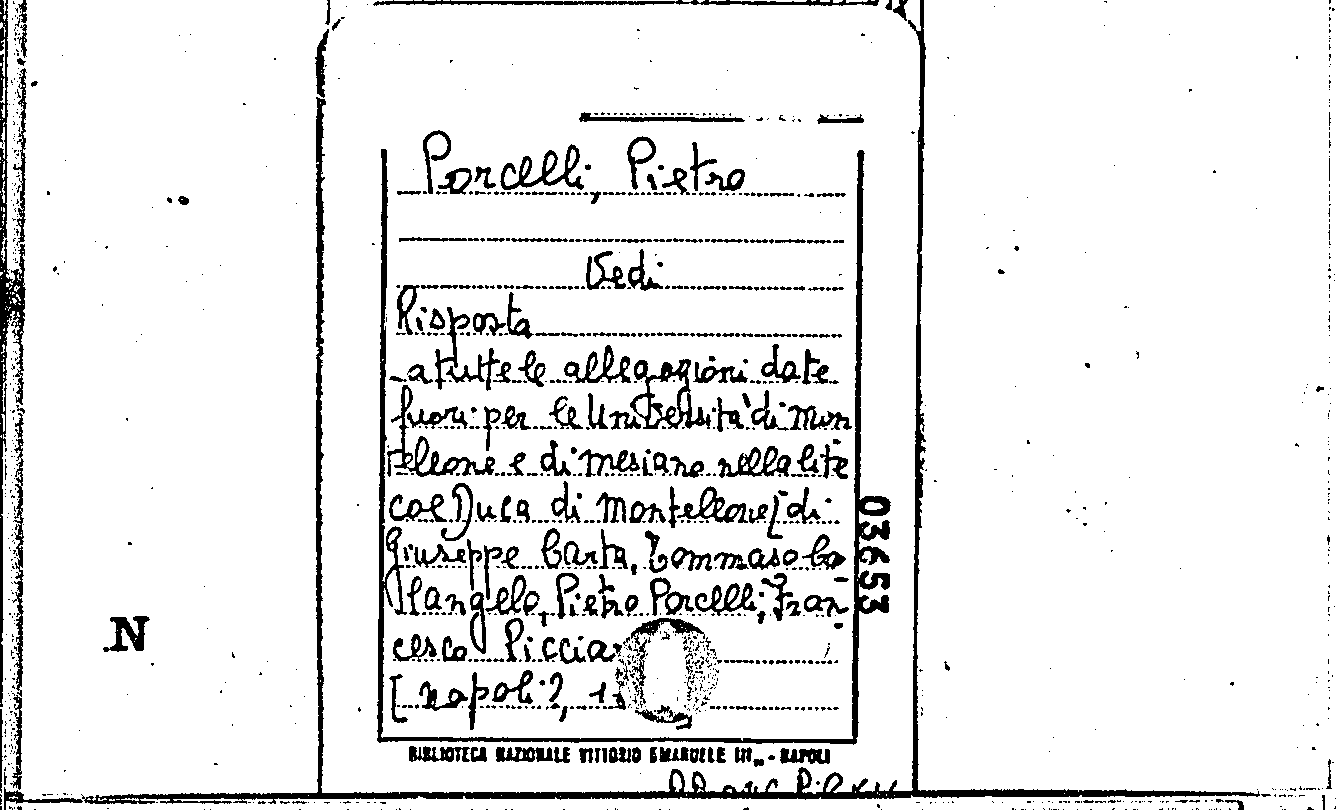 Porcelli, Pietro
Vedi
Risposta
a tutte le allegazioni date
fuori per le Università di Mon
teleone e di Mesiano nella lite
col Duca di Monteleone [di
Giuseppe Carta, Tommaso Ca
Pietro Porcelli, Fran
cesco Piccia
[Napoli?, 1
03653
N
BIBLIOTECA NAZIONALE VITTORIO EMANUELE III„ - NAPOLI